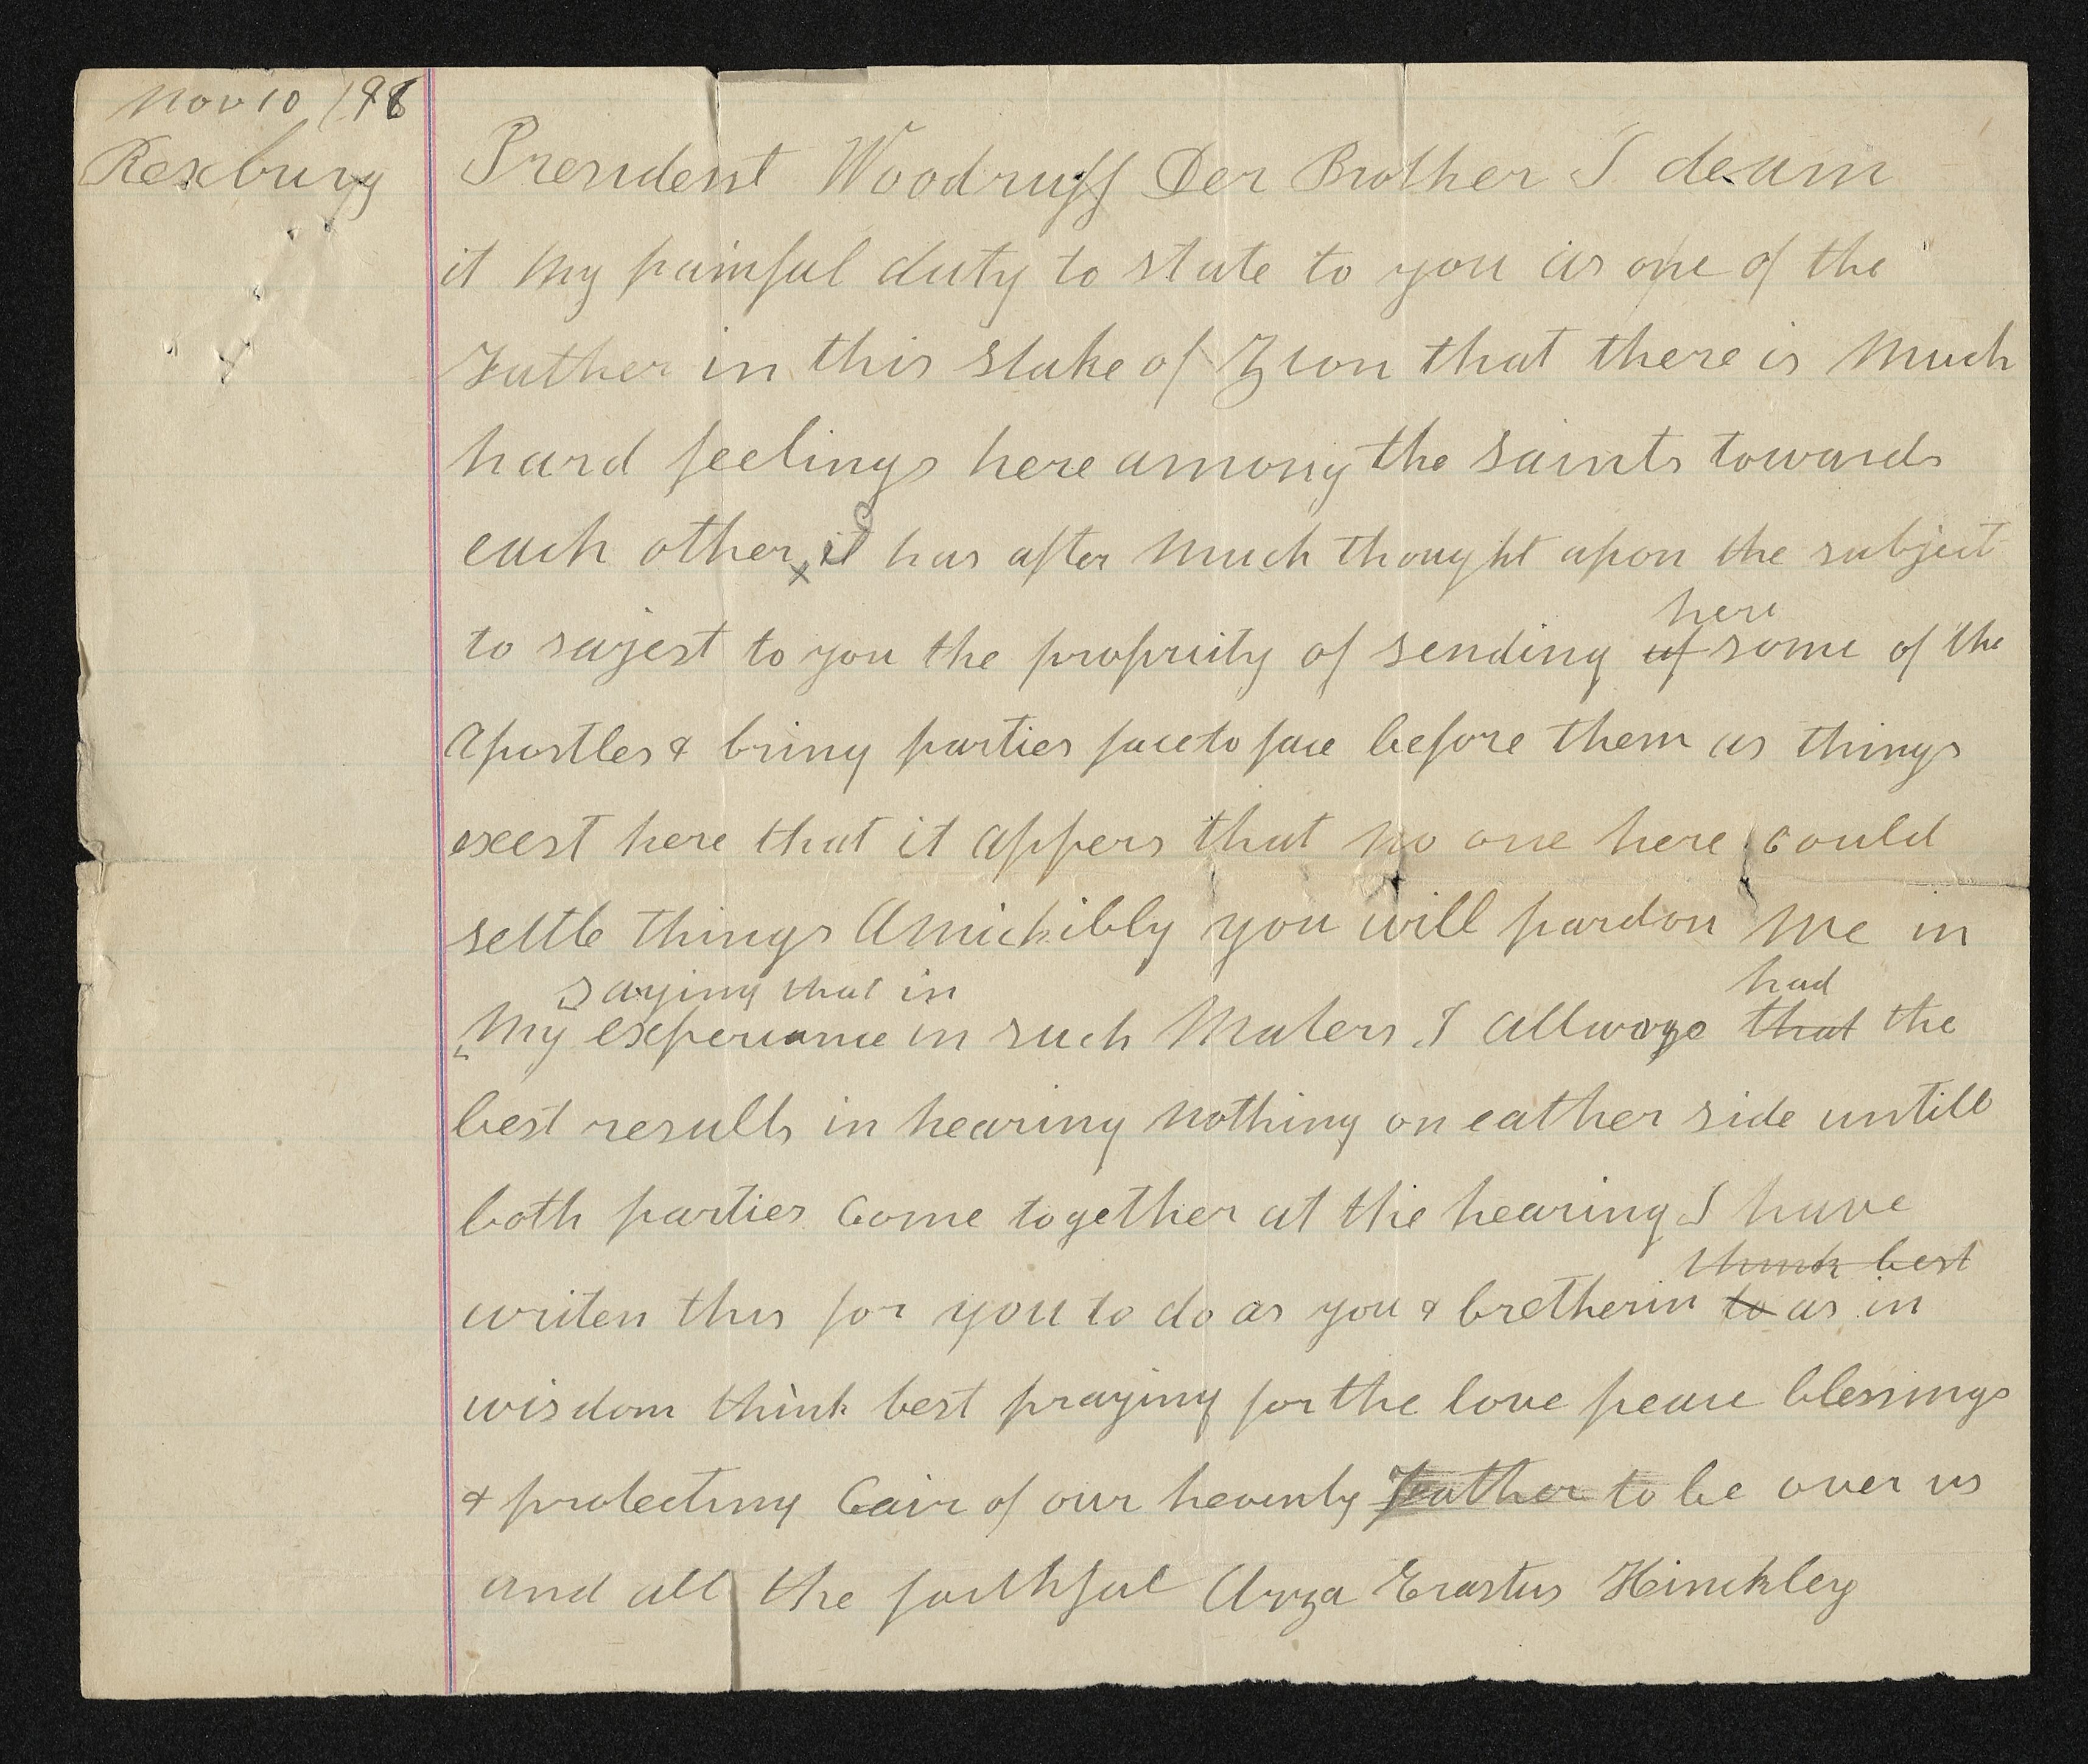 Nov 10 /96
Rexburg
President Woodruff Der Brother I deam
it My painful duty to state to you as one of the
Father in this stake of Zion that there is Much
hard feelings here among the saints towards
each other, it has after Much thought apon the subject
here
to sajest to you the propriety of sending of some of the
Apostles & bring parties face to face before them as things
exest here that it appers that no one here could
settle things Amickibly you will pardon Me in
saying that in had
My experiance in such Maters I allways that the
best results in hearing Nothing on eather side untill
both parties Come together at the hearing I have
think best
writen this for you to do as you & bretherin to as in
wisdom think best praying for the love peace blessings
& protecting Cair of our hevenly Father to be over us
and all the faithful Arza Erastus Hinckley